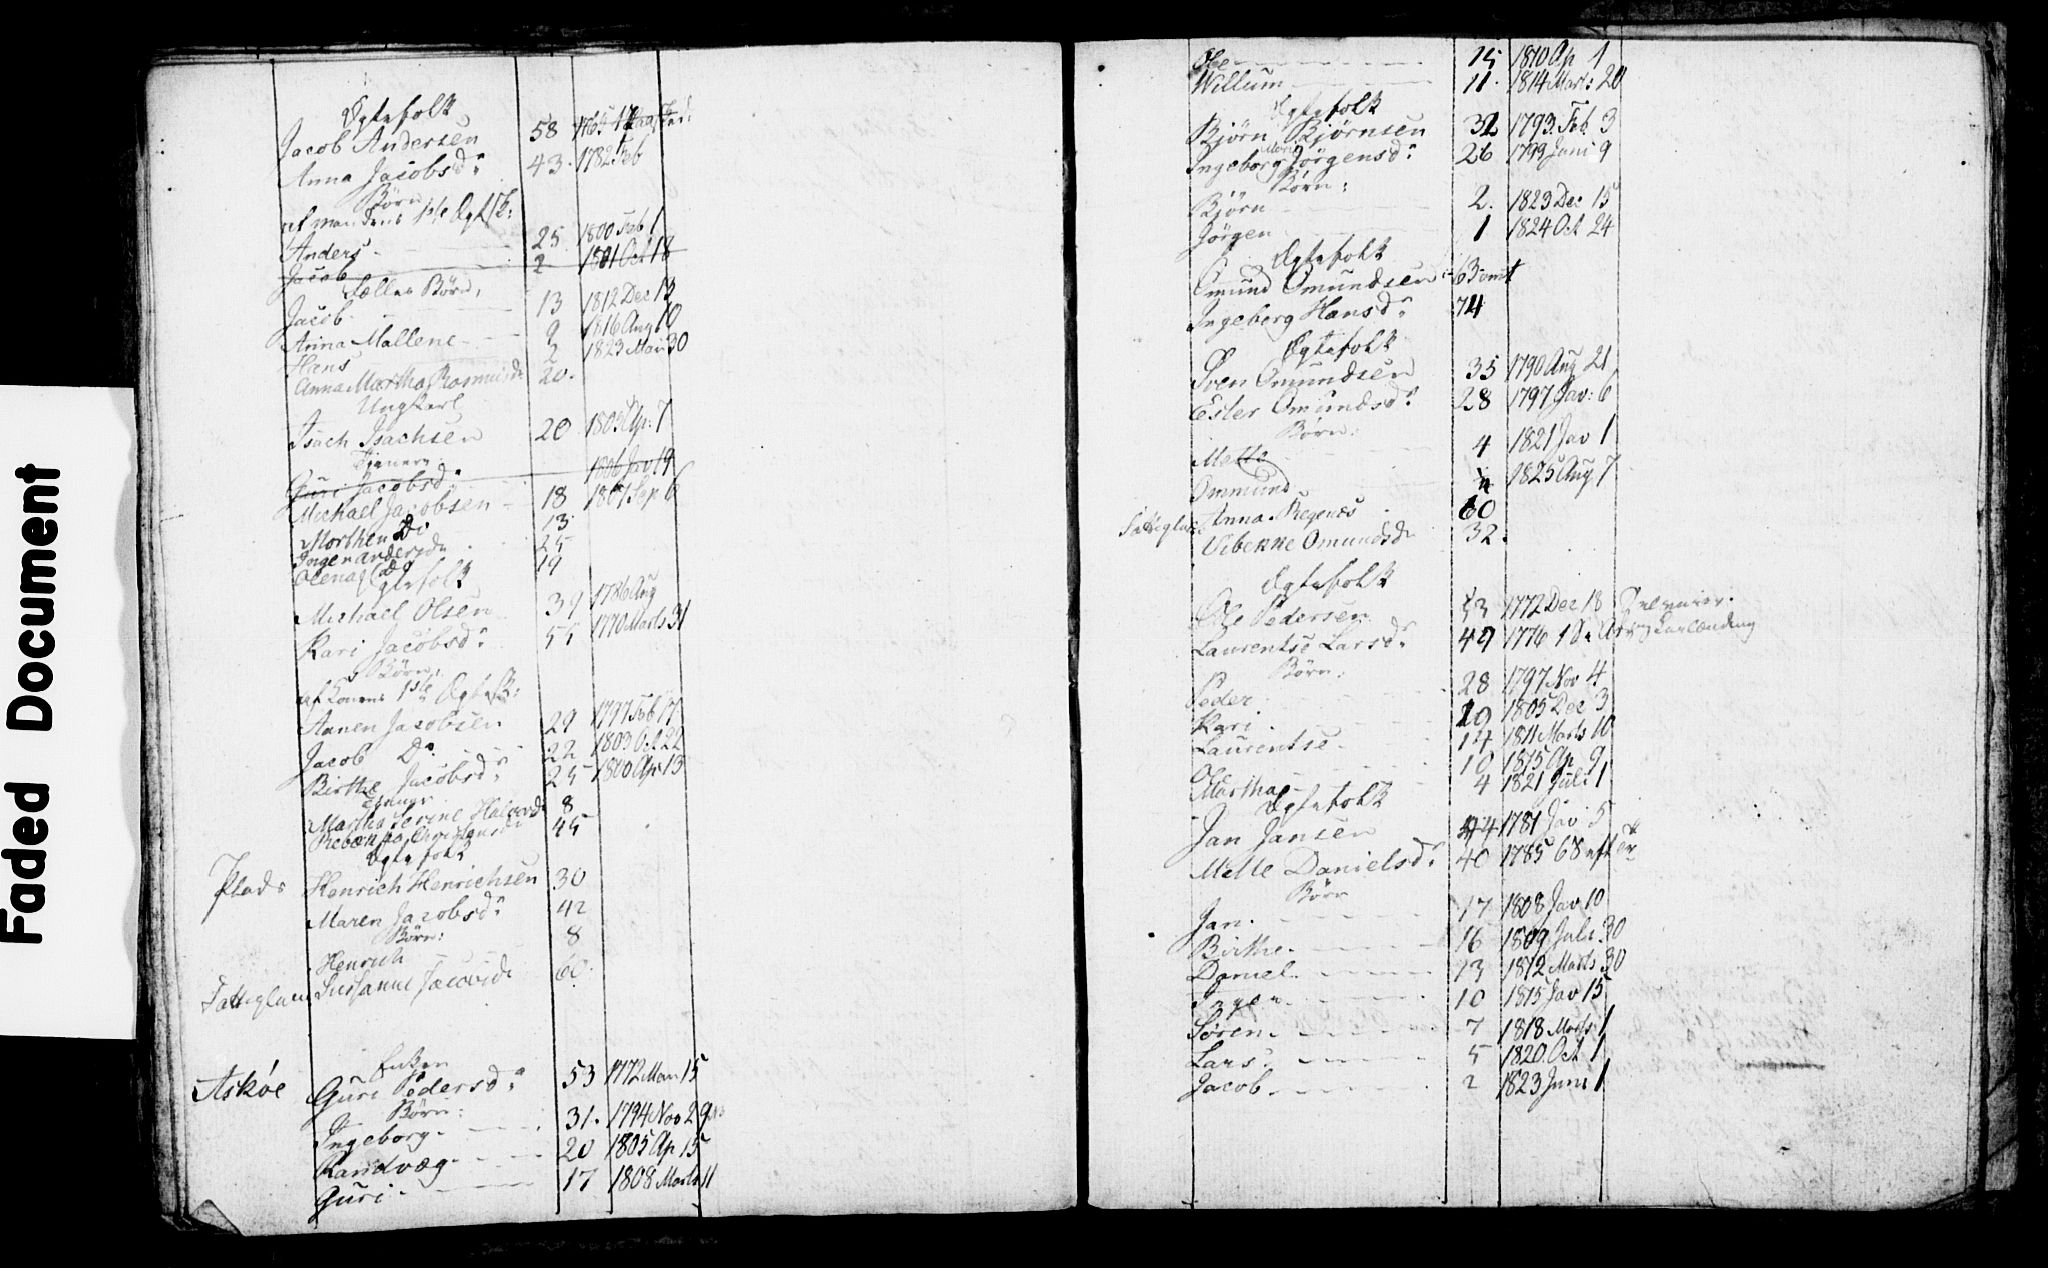 Faded Document
Ægtefolk
Jacob Andersen 58
Anna Jacobsd: 43. 1782 Feb
Børn
af mandens 1ste Ægtsk:
Anders 25 1800 Feb 1
Jacob 2 1801 Oct 18
Fælles Børn,
Jacob 13 1812 Dec 13
Anna Mallene 9 1816 Aug 10
Hans 2 1823 Mai 30
Anna Martha Rasmusd 20.
Ungkerl
Isach Isachsen 20 1805 Ap: 7
Tjenere:
Guri Jacobsd: 1806 Jav 14
Michael Jacobsen 18 1807 Sep 6
Morthen Do 13
Inger Andersd 25
Olena Do 19
Ægtefolk
Michael Olsen 39 1786 Aug
Kari Jacobsd: 55 1770 Marts 31
Børn:
af Konens 1ste Ægtsk:
Aanen Jacobsen 29 1797 Feb 17
Jacob Do 22 1803 Oct 22
Birthe Jacobsd: 25 1800 Ap 13
Tjener
Martha Serine Halvord 8
Rebekka 45
Ægtefolk
Plads Henrich Henrichsen 30
Maren Jacobsd: 42
Børn:
Henrich 8
Fattiglem Susanne Jacobsd 60.
Enken
Askøe Guri Pedersd: 53 1772 Mar 15
Børn:
Ingeborg 31. 1794 Nov 29
Randvæg 20 1805 Ap 15
Guri 17 1808 Marts 11
Ole 15 1810 Ap 1
Willum 11. 1814 Marts 20
Ægtefolk
Bjørn Bjørnsen 32 1793. Feb. 3
Ingeborg Marie Jørgensd: 26 1799 Juni 9
Børn:
Bjørn 2. 1823 Dec 15
Jørgen 1 1824 Oct 24
Ægtefolk
Omund Omundsen 63 omt
Ingeborg Hansd: 74
Ægtefolk
Sven Omundsen 35 1790 Aug 21
Ester Omundsd: 28 1797 Jav: 6
Børn:
Mette 4 1821 Jav 1
Ommund 1825 Aug 7
Fattiglem Anna Regenes 60
Vibekke Omundsd 32.
Ægtefolk
Ole Pedersen 53 1772 Dec 18
Laurentse Larsd: 49 1776
Børn:
Peder 28 1797 Nov 4
Kari 19 1805 Dec 3
Laurentse 14 1811 Marts 10
Ole 10 1815 Ap 9
Martha 4 1821 Juli 1
Ægtefolk
Jan Jansen 44 1781 Jav 5
Mette Danielsd: 40 1785
Børn
Jan 17 1808 Jav 10
Birthe 16 1809 Juli 30
Daniel 13 1812 Marts 30
Inger 10 1815 Jav 15
Søren 7 1818 Marts 1
Lars 5 1820. Oct 1
Jacob 2 1823 Juni 1